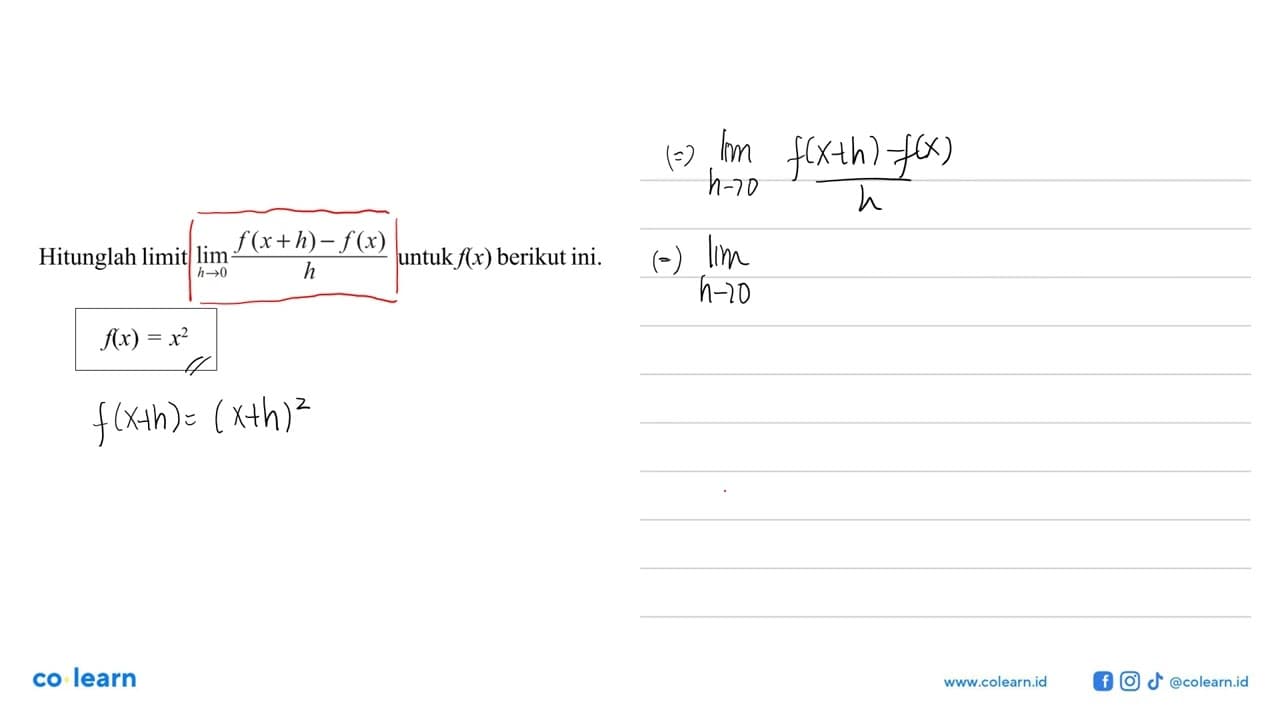 Hitunglah limit lim h→0 f(x+h)−f(x) / h untuk f(x) berikut ini.
f(x) = x²
f(x+h) = (x+h)²
(=) lim h→0 f(x+h) − f(x) / h
(=) lim h→0
co learn
www.colearn.id
@colearn.id